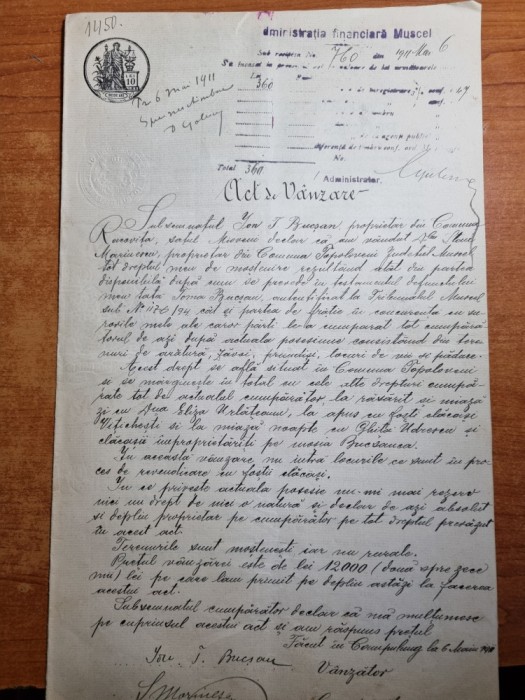 1450.
Administrația financiară Muscel
Sub recipisa No. 1760 din 1911 Mai 6
Lei
360
Tr. 6 Mai 1911
LEI
10
Total 360
No.
Administrator,
Act de Vânzare
Subsemnatul Ion T. Bucșan, proprietar din Comuna
Racovița, județ. Muscel declar că am vândut D-lui Stan
Marinescu, proprietar din Comuna Topoloveni Județul Muscel
tot dreptul meu de moștenire rezultând atât din partea
disponibilă după cum se prevede în testamentul defunctului
meu tată Toma Bucșan, autentificat la Tribunalul Muscel
sub No cât și partea de frăție în concurență cu su-
rorile mele ale căror părți le-a cumpărat tot cumpără-
torul de azi după actuala posesiune consistând din tere-
nuri de arătură, fânețe, prundiș, locuri de vie și pădure.
Acest drept se află situat în Comuna Topoloveni
și se mărginește în total cu cele alte drepturi cumpă-
rate tot de actualul cumpărător la răsărit și miază
zi cu Dna Eliza Urlățeanu, la apus cu foști clăcași
Vițichești și la miază noapte cu Ghiță Udrescu și
clăcași împroprietăriți pe moșia Bucșanca.
În această vânzare nu intră locurile ce sunt în pro-
ces de revendicare cu foștii clăcași.
În ce privește actuala posesie nu-mi mai rezerv
nici un drept de nici o natură și declar de azi absolut
și deplin proprietar pe cumpărător pe tot dreptul prevăzut
în acest act.
Terenurile sunt moștenești iar nu rurale.
Prețul vânzărei este de lei 12000 (două spre zece
mii) lei pe care lam primit pe deplin astăzi la facerea
acestui act.
Subsemnatul cumpărător declar că mă mulțumesc
pe cuprinsul acestui act și am răspuns prețul
Făcut în Câmpulung la 6 Maiu 1911
Ion T. Bucșan Vânzător
S. Marinescu